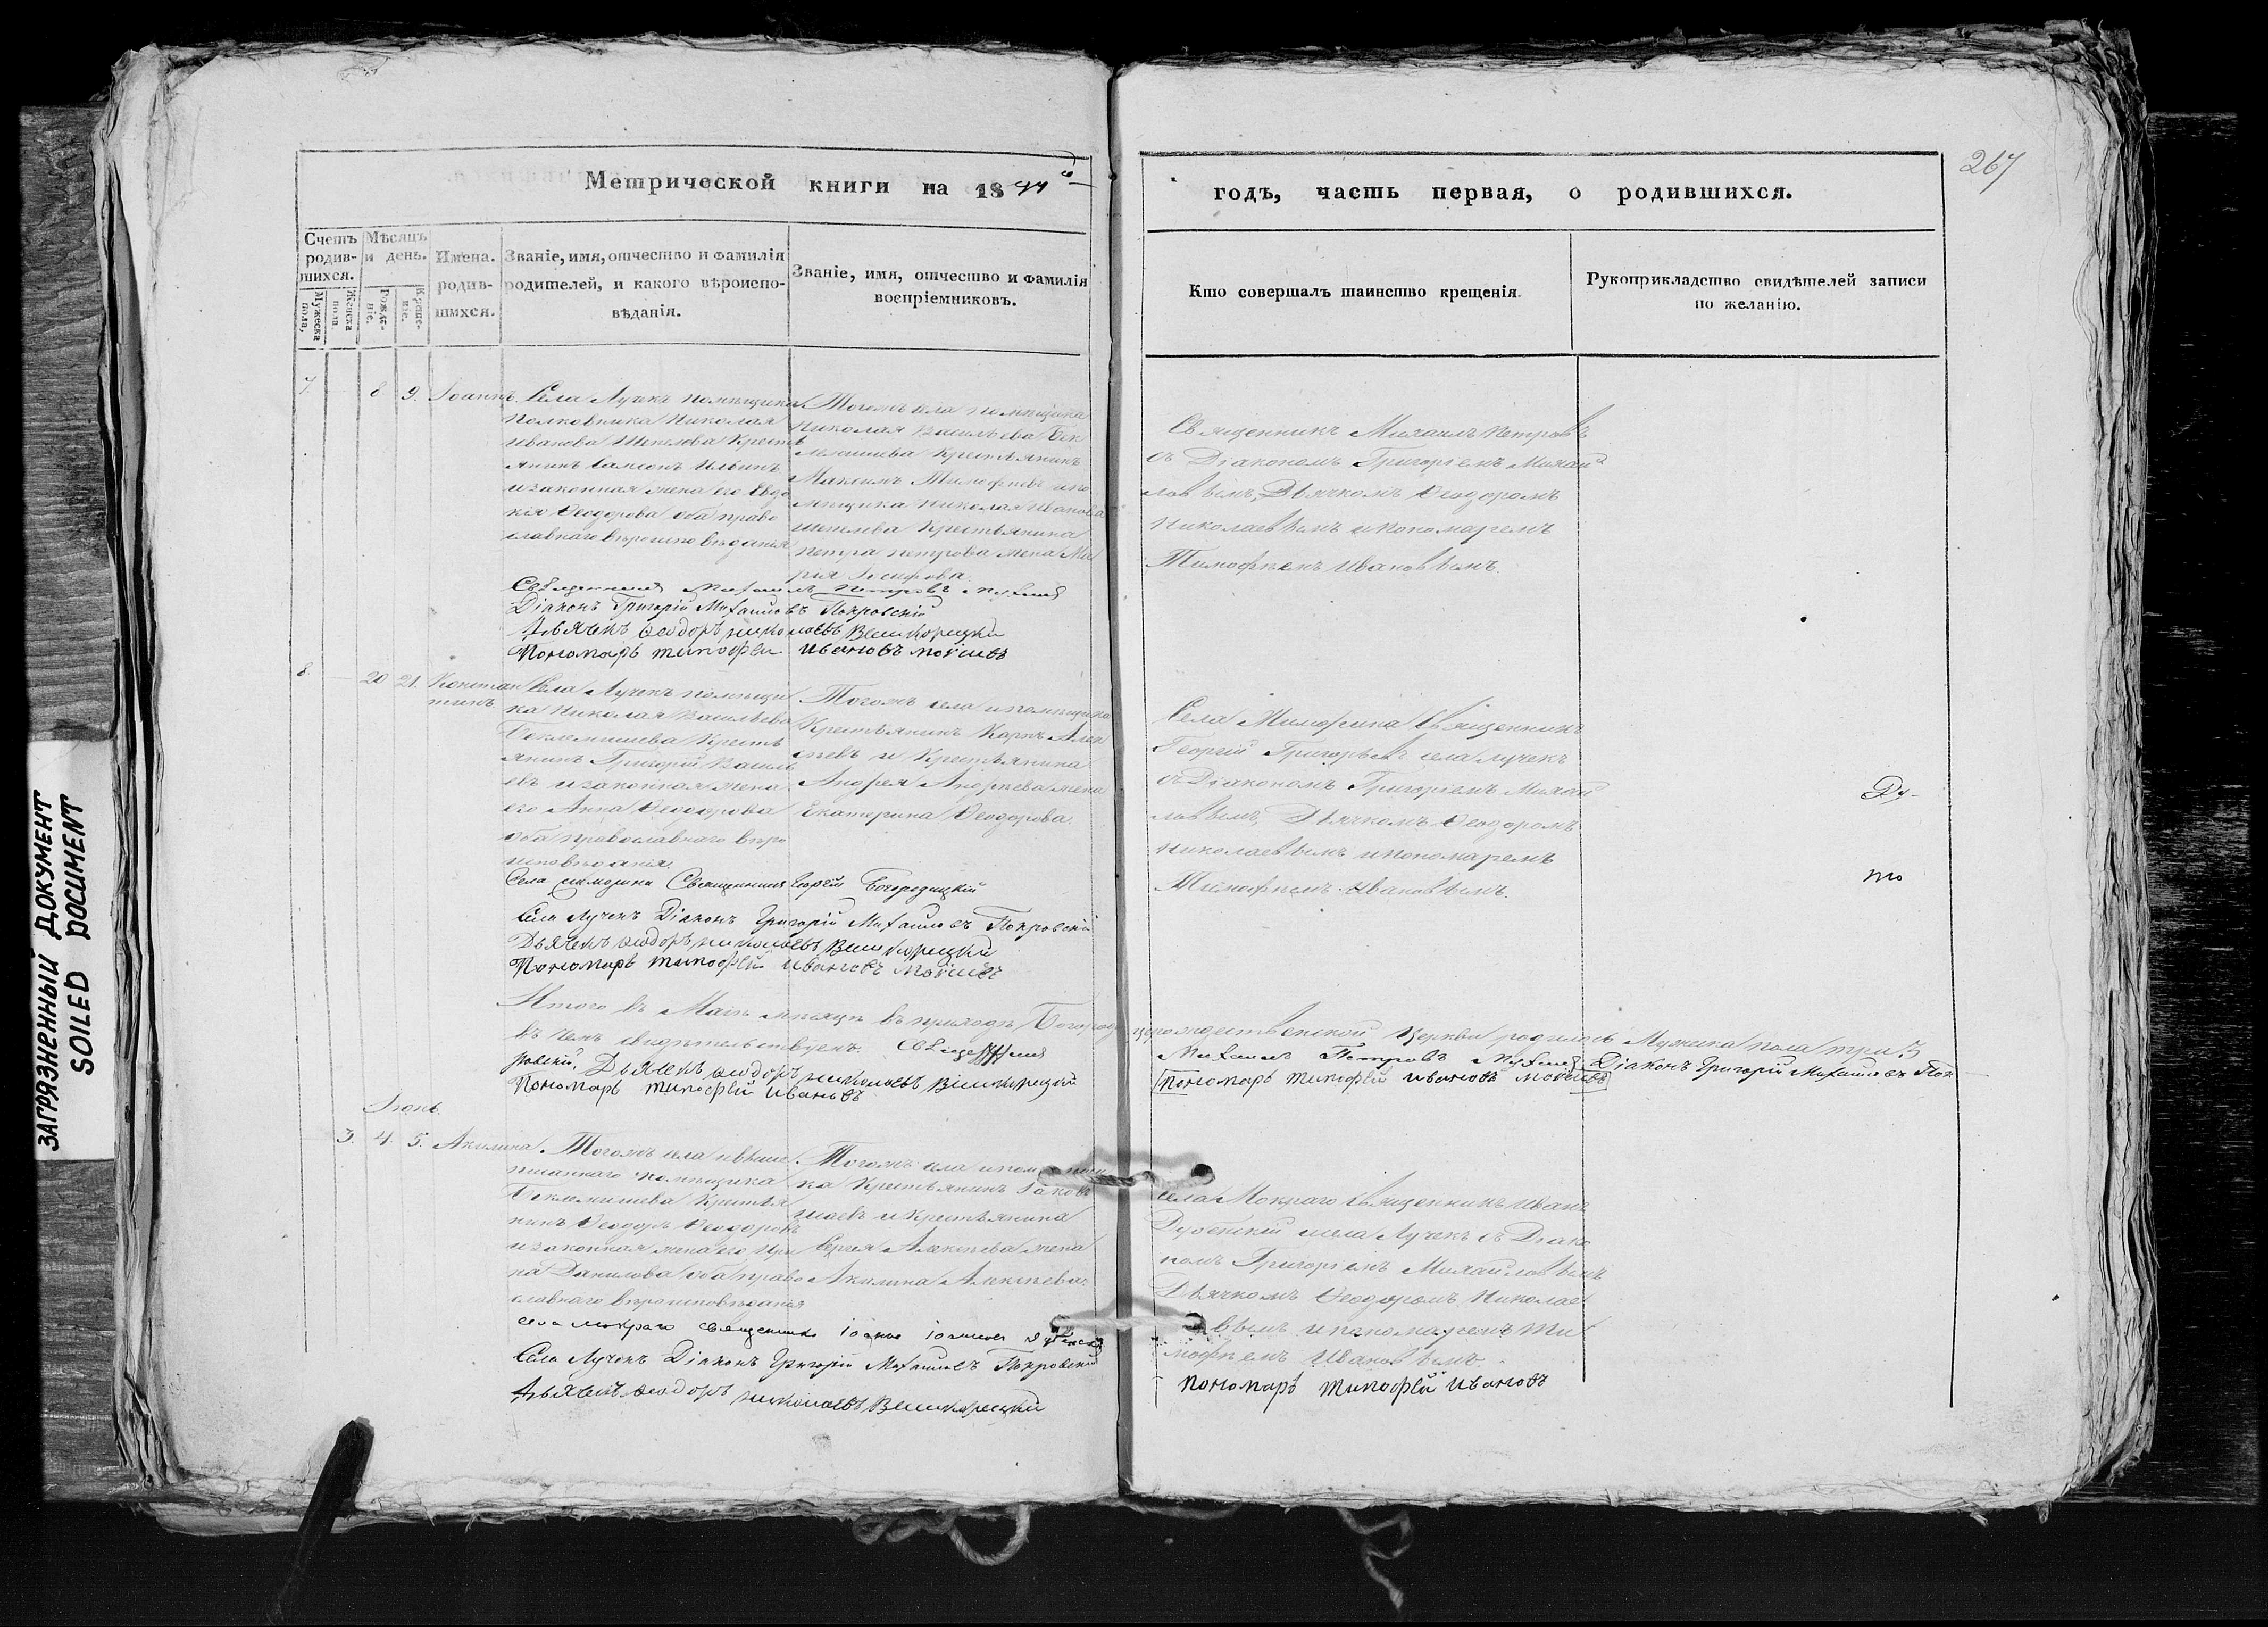 Метрической книги на 1844
годъ, часть первая, о родившихся.
267
Счетъ родив-
шихся.
Мужеска пола,
Женска пола.
Мѣсяцъ
и день.
Рожде-
ніе.
Креще-
ніе.
Имена.
родив-
шихся.
Званіе, имя, отчество и фамилія
родителей, и какого вѣроиспо-
вѣданія.
Званіе, имя, отчество и фамилія
воспріемниковъ.
Кто совершалъ таинство крещенія.
Рукоприкладство свидѣтелей записи
по желанію.
7. 8 9. Іоаннъ.
Села Лучекъ помѣщика
полковника Николая
Иванова Шепелева Кресть
янинъ Самсонъ Ильинъ
и законная жена его Евдо
кія Ѳеодорова оба право
славнаго вѣроисповѣданія
Тогожъ села помѣщика
Николая Васильева Бек
лемишева Крестьянинъ
Максимъ Тимофѣевъ и по
мѣщика Николая Иванова
Шепелева Крестьянина
Петра Петрова жена Ма
рія Іосифова.
Священникъ Михаилъ Петровъ
съ Діакономъ Григоріемъ Михай
ловымъ, Дьячкомъ Ѳеодоромъ
Николаевымъ и пономаремъ
Тимофѣемъ Ивановымъ.
Священникъ Михаилъ Петровъ
Діаконъ Григорій Михайловъ Покровскій
Дьячекъ Ѳеодоръ Николаевъ
Пономарь Тимофей Ивановъ
8. 20 21. Констан
тинъ
Села Лучекъ помѣщи
ка Николая Васильева
Беклемишева Кресть
янинъ Григорій Василь
евъ и законная жена
его Анна Ѳеодорова
оба православнаго вѣро
исповѣданія.
Тогожъ села и помѣщика
Крестьянинъ Карпъ Алек
сѣевъ и Крестьянина
Андрея Андреева жена
Екатерина Ѳеодорова.
Села Священникъ
Георгій Григорьевъ села Лучекъ
съ Діакономъ Григоріемъ Михай
ловымъ, Дьячкомъ Ѳеодоромъ
Николаевымъ и пономаремъ
Тимофѣемъ Ивановымъ.
Ду-
то
Села Священникъ Георгій Богородицкій
Села Лучекъ Діаконъ Григорій Михайловъ Покровскій
Дьячекъ Ѳеодоръ Николаевъ
Пономарь Тимофей Ивановъ
Итого въ Маіѣ мѣсяцѣ въ приходѣ Богородицерождественской Церкви родилось Мужеска пола три. 3
въ чемъ свидѣтельствуемъ. Священникъ Михаилъ Петровъ Діаконъ Григорій Михайловъ Пок
ровскій, Дьячекъ Ѳеодоръ Николаевъ
Пономарь Тимофей Ивановъ
Пономарь Тимофей Ивановъ
Іюнь.
3. 4. 5. Акилина.
Тогожъ села и выше
писаннаго помѣщика
Беклемишева Крестья
нинъ Ѳеодоръ Ѳеодоровъ
и законная жена его Ири
на Данилова оба право
славнаго вѣроисповѣданія
Тогожъ села и помѣщи
ка Крестьянинъ Іаковъ
и Крестьянина
Сергея Алексѣева жена
Акилина Алексѣева
Села Мокраго Священникъ Иванъ
Дубенскій села Лучекъ съ Діако
номъ Григоріемъ Михайловымъ
Дьячкомъ Ѳеодоромъ Николае
вымъ и пономаремъ Ти
мофѣемъ Ивановымъ
Села Мокраго священникъ
Села Лучекъ Діаконъ Григорій Михайловъ Покровскій
Дьячекъ Ѳеодоръ Николаевъ
Пономарь Тимофей Ивановъ
ЗАГРЯЗНЕННЫЙ ДОКУМЕНТ
SOILED DOCUMENT